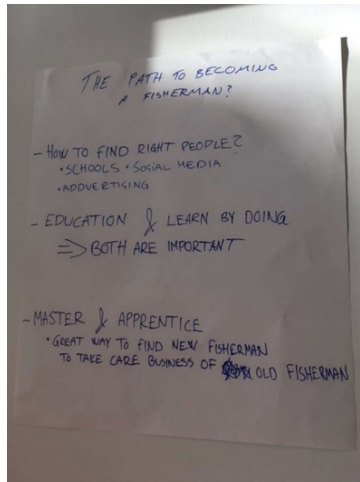 THE PATH TO BECOMING
A FISHERMAN?
- HOW TO FIND RIGHT PEOPLE?
• SCHOOLS • SOCIAL MEDIA
• ADDVERTISING
- EDUCATION & LEARN BY DOING
=> BOTH ARE IMPORTANT
- MASTER & APPRENTICE
• GREAT WAY TO FIND NEW FISHERMAN
TO TAKE CARE BUSINESS OF OLD FISHERMAN